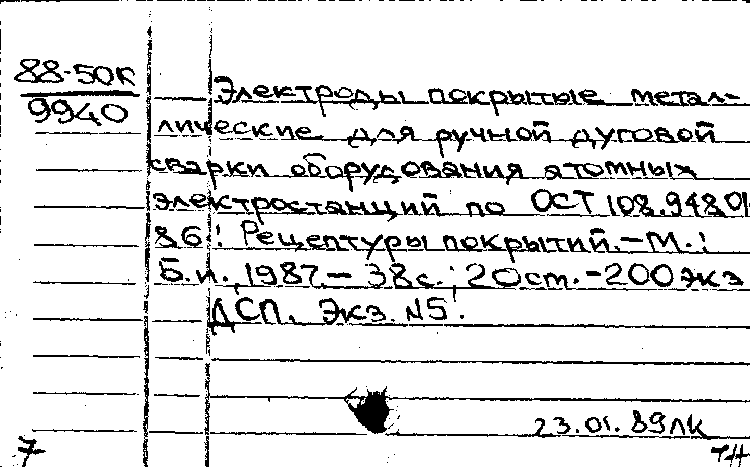 88-50К
9940
Электроды покрытые метал-
лические для ручной дуговой
сварки оборудования атомных
электростанций по ОСТ 108.948.01
86: Рецептуры покрытий.-М.:
Б.и., 1987.- 38с.; 20 ст.-200 экз
ДСП. Экз. №5.
23.01.89 ЛК
7
ТН